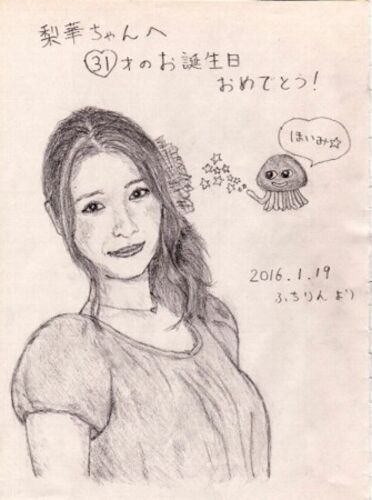 梨華ちゃんへ
31才のお誕生日
おめでとう！
ほいみ☆
2016.1.19
ふちりんより